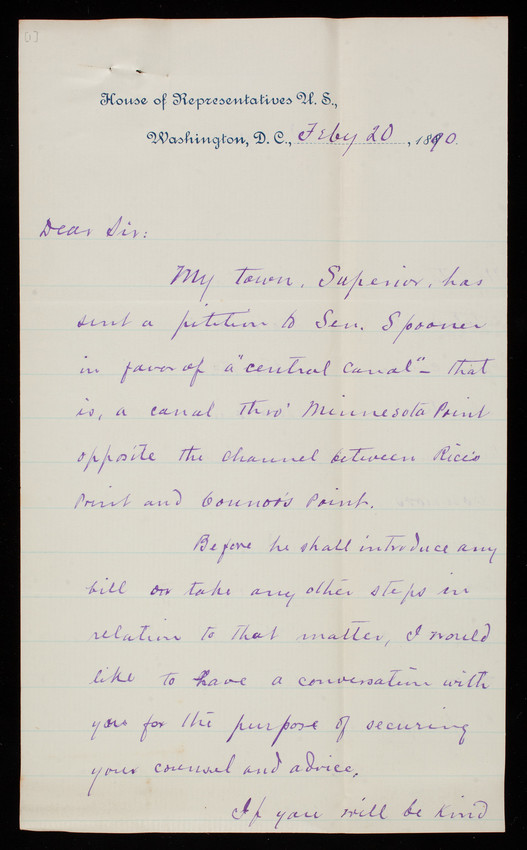 [1]
House of Representatives U. S.,
Washington, D. C., Feby 20, 1890.
Dear Sir:
My town, Superior, has
sent a petition to Sen. Spooner
in favor of a "central canal" – that
is, a canal thro' Minnesota Point
opposite the channel between Rice's
Point and Connor's Point.
Before he shall introduce any
bill or take any other steps in
relation to that matter, I would
like to have a conversation with
you for the purpose of securing
your counsel and advice.
If you will be kind